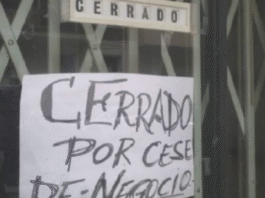 CERRADO
CERRADO
POR CESE
DE-NEGOCIO-